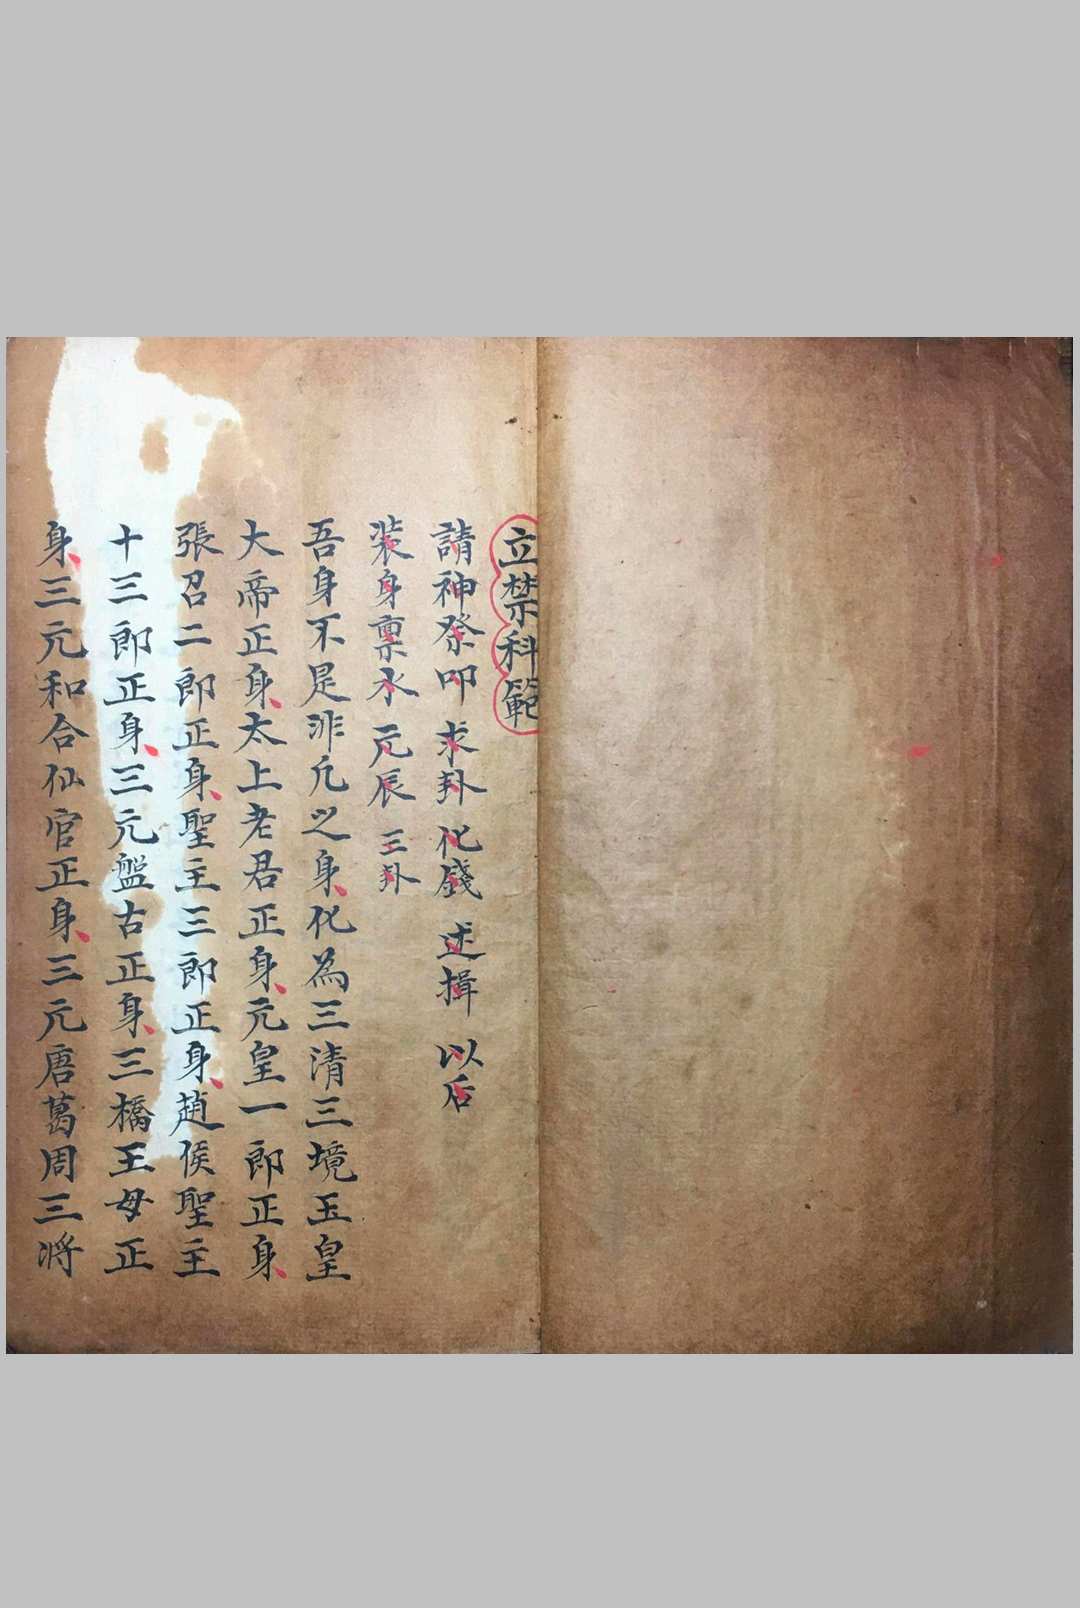 立禁科範
請神祭叩 求卦 化錢 述揖 以后
装身禀水 元辰 三卦
吾身不是非凢之身化為三清三境玉皇
大帝正身太上老君正身元皇一郎正身
張召二郎正身聖主三郎正身趙侯聖主
十三郎正身三元盤古正身三橋王母正
身三元和合仙官正身三元唐葛周三将